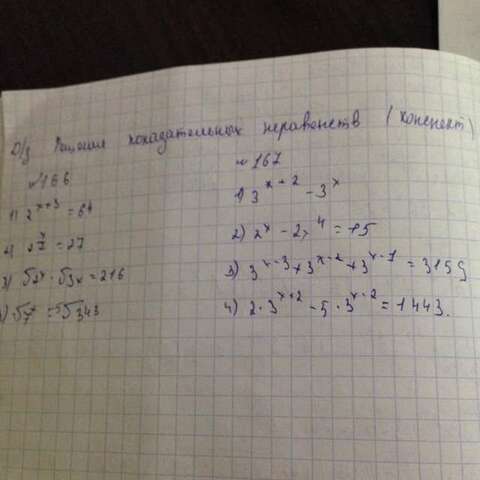 Д/з Решение показательных неравенств (конспект)
№166
1) 2^(x+3) = 64
3) √2^x · √3x = 216
4) √7^x = ⁵√343
№167
1) 3^(x+2) - 3^x
3) 3^(x-3) + 3^(x-2) + 3^(x-1) = 3159
4) 2·3^(x+2) - 5·3^(x-2) = 1443.